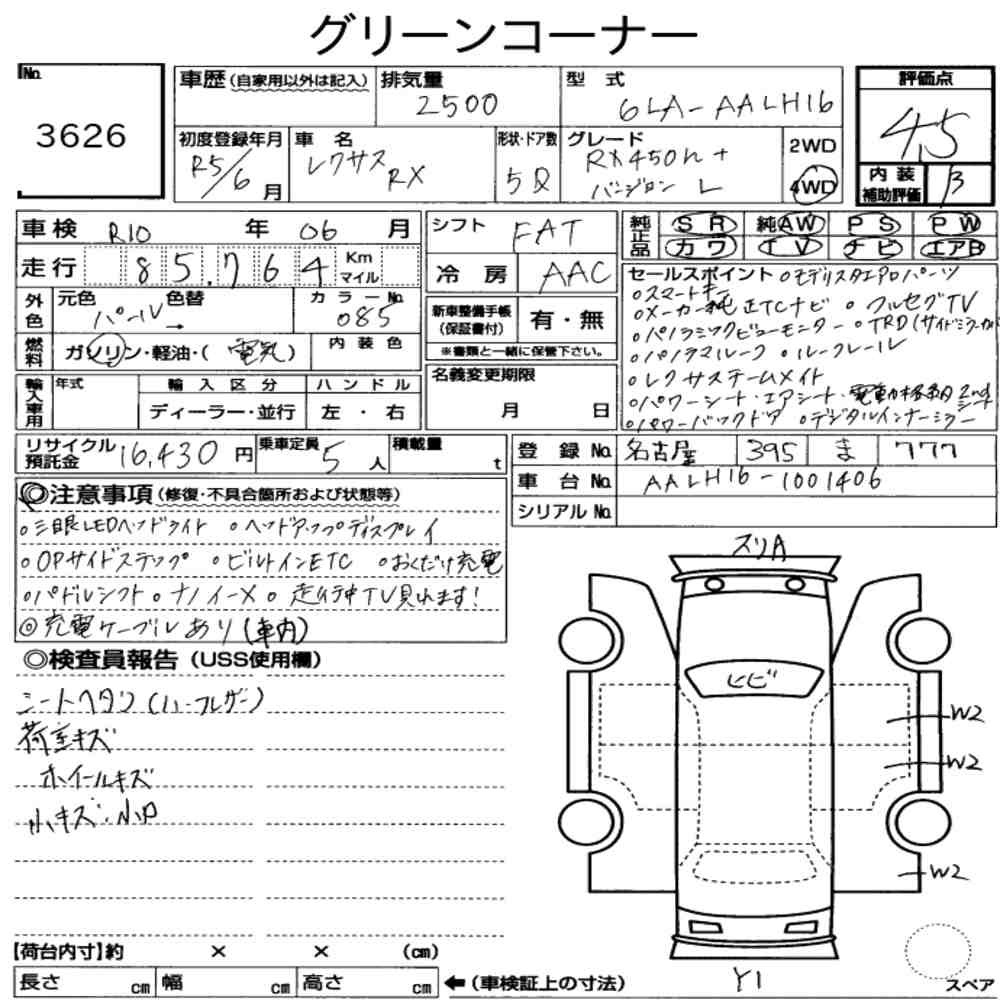 グリーンコーナー
No. 3626
車歴(自家用以外は記入) 排気量 2500 型式 6LA-AALH16
評価点 4.5
内装補助評価 B
初度登録年月 R5/6月 車名 レクサス RX 形状・ドア数 5D グレード RX450h+ バージョン L 2WD 4WD
車検 R10年 06月
走行 85.764 Km マイル
シフト FAT
冷房 AAC
純正品 SR 純AW PS PW
カワ TV ナビ エアB
外色 元色 パール→ 色替 カラーNo. 085
燃料 ガソリン・軽油・(電気) 内装色
新車整備手帳(保証書付) 有・無
※書類と一緒に保管下さい。
輸入車用 年式 輸入区分 ハンドル
ディーラー・並行 左・右
名義変更期限 月 日
セールスポイント ○モデリスタエアロパーツ
○スマートキー
○メーカー純正TCナビ ○フルセグTV
○パノラミックビューモニター ○TRD(サイドミラーカバー
○パノラマルーフ ○ルーフレール
○レクサスチームメイト
○パワーシート・エアシート・電動格納2ndシート
○パワーバックドア ○デジタルインナーミラー
リサイクル預託金 16,430円 乗車定員 5人 積載量 t
登録No. 名古屋 395 ま 777
車台No. AALH16-1001406
シリアルNo.
◎注意事項(修復・不具合箇所および状態等)
○三眼LEDヘッドライト ○ヘッドアップディスプレイ
○OPサイドステップ ○ビルトインETC ○おくだけ充電
○パドルシフト ○ナノイーX ○走行中TV見れます!
◎充電ケーブルあり(車内)
◎検査員報告(USS使用欄)
シートヘタリ(ハーフレザー)
荷室キズ
ホイールキズ
小キズ・小凹
スリA
ヒビ
W2
W2
W2
Y1
スペア
【荷台内寸】約 × × (cm)
長さ cm 幅 cm 高さ cm ←(車検証上の寸法)